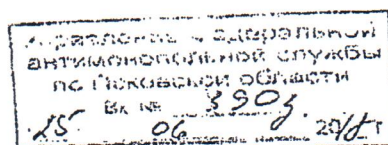 Управление Федеральной
антимонопольной службы
по Псковской области
Вх №
25 06